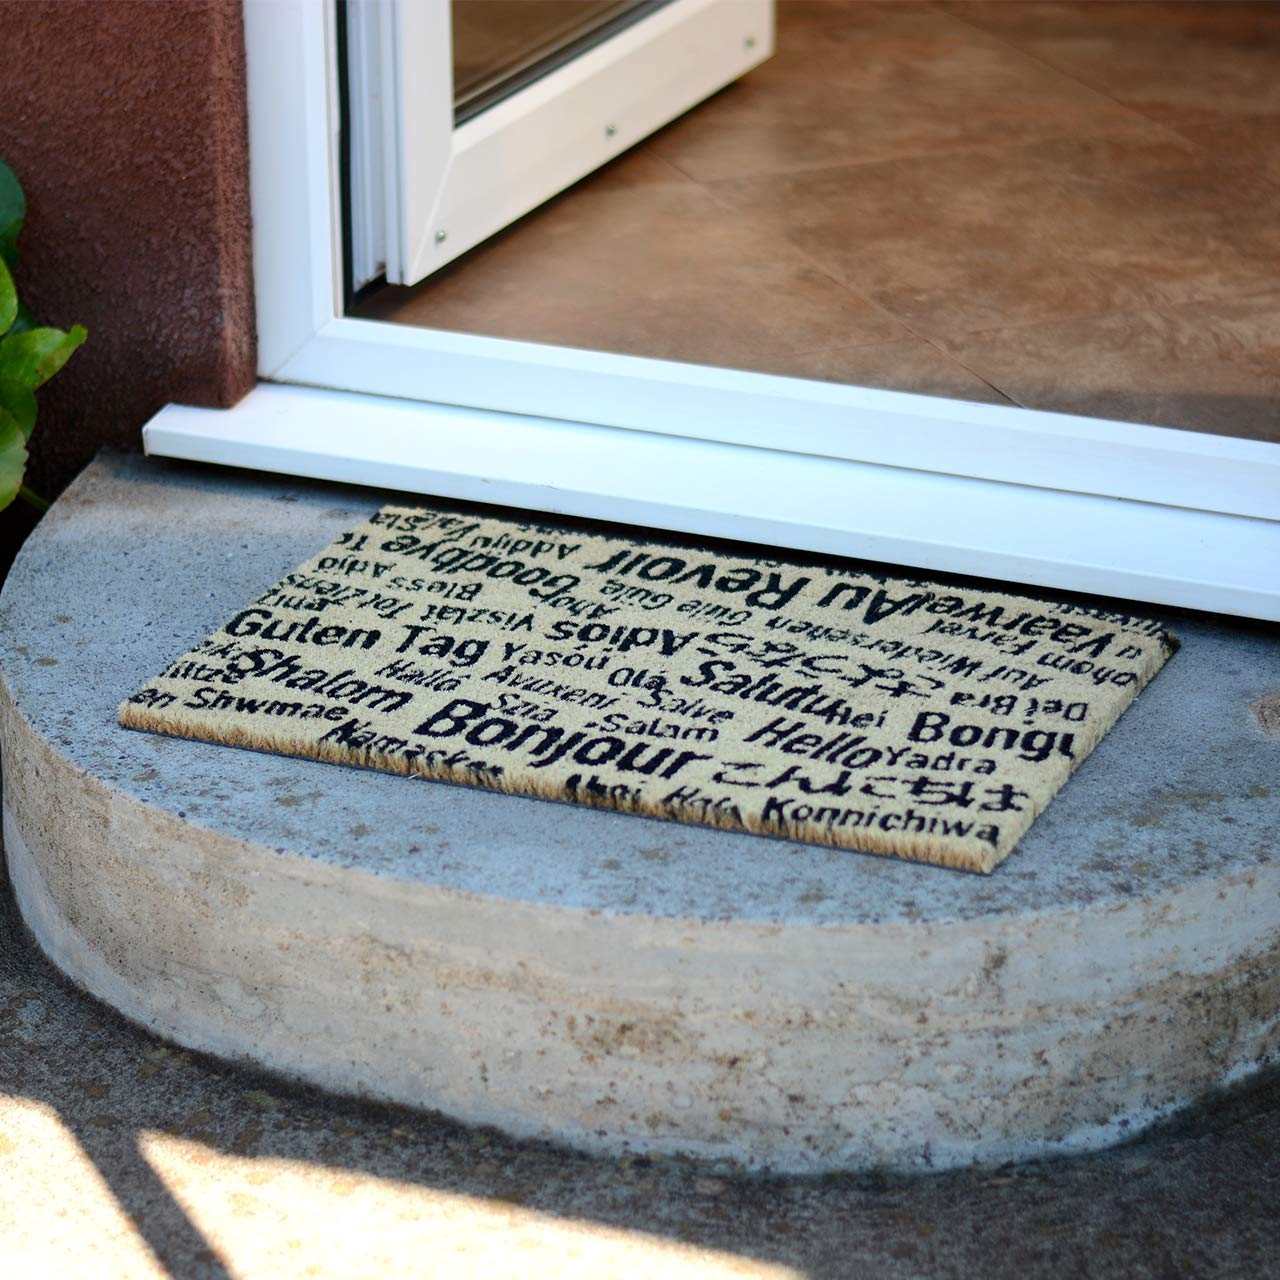 Shwmae
Namaste
Shalom
Bonjour
こんにちは
Konnichiwa
Hallo
Szia
Salam
Hello
Yadra
Guten Tag
Yasou
Avuxeni
Ola
Salve
Salut
Hei
Bongu
Totziens
Viszlát
Adiós
さようなら
Dei Bra
Arijo
Bless
Ahoj
Güle Güle
Auf Wiedersehen
Farvel
Goodbye
Addiju
Au Revoir
Vaarwel